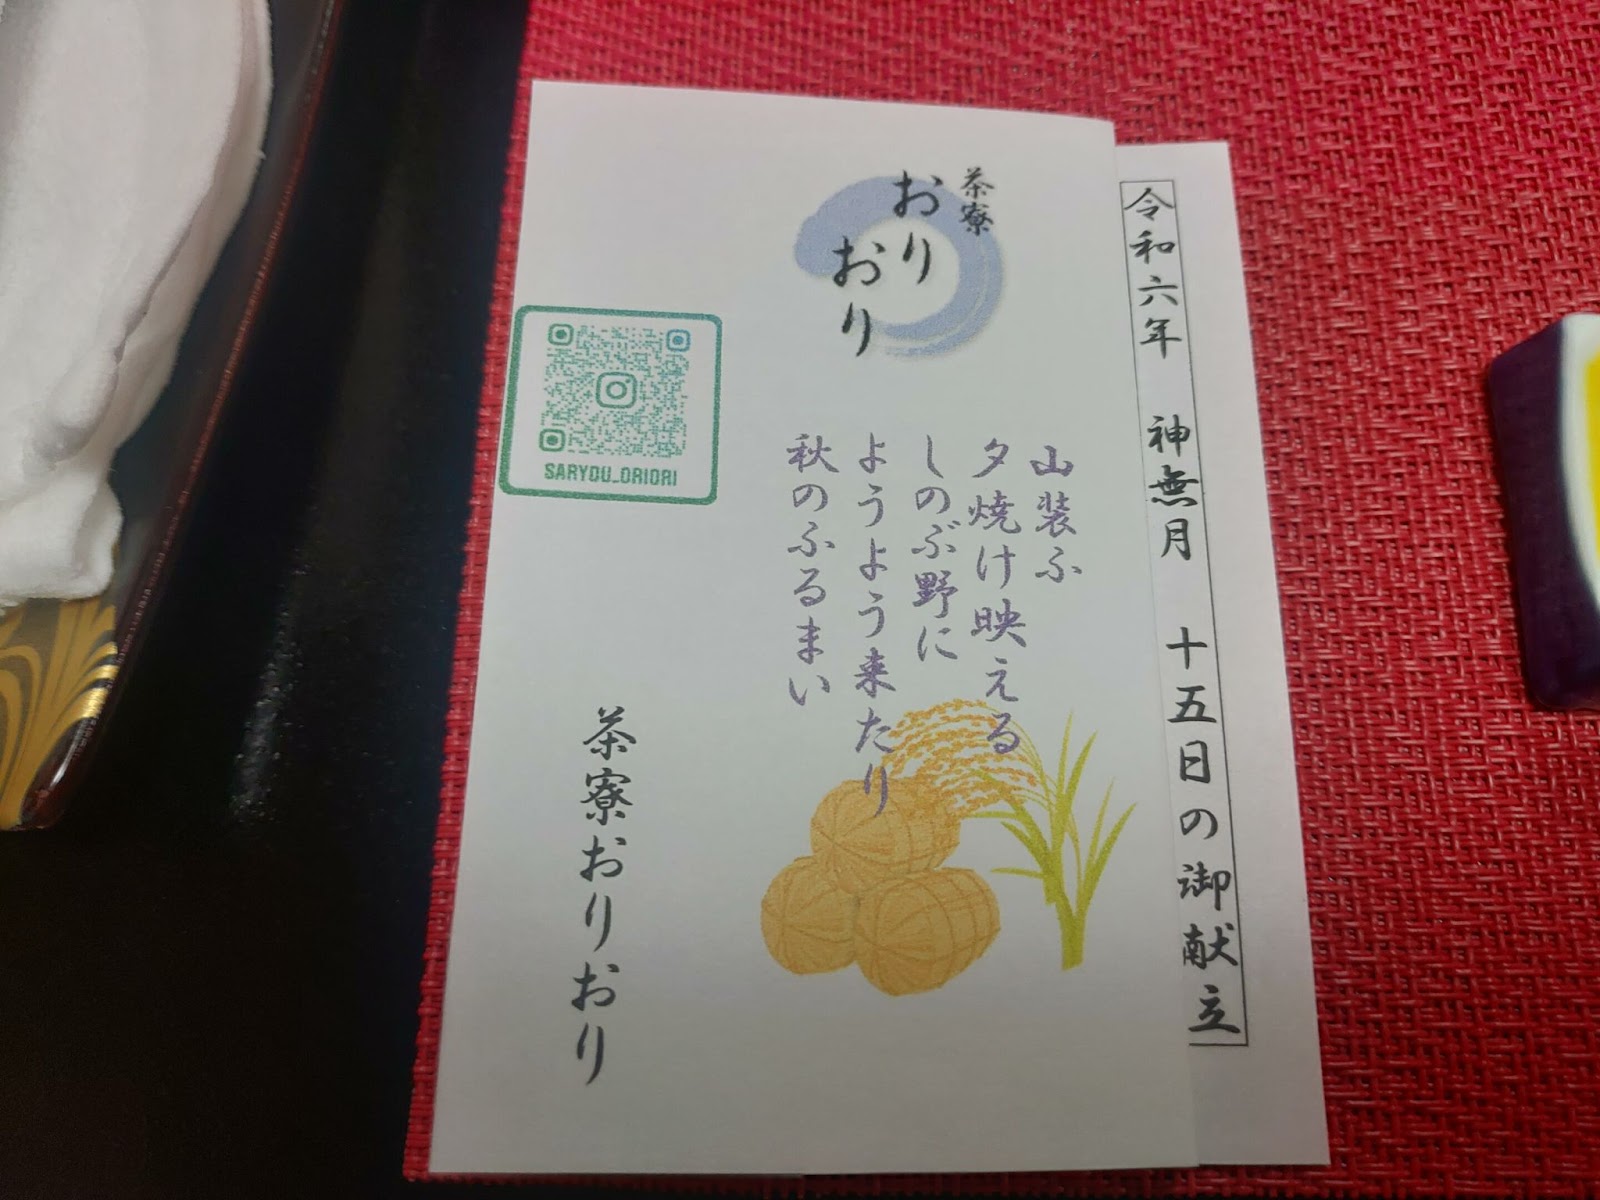 令和六年 神無月 十五日の御献立
茶寮
おり
おり
山装ふ
夕焼け映える
しのぶ野に
ようよう来たり
秋のふるまい
SARYOU_ORIORI
茶寮おりおり